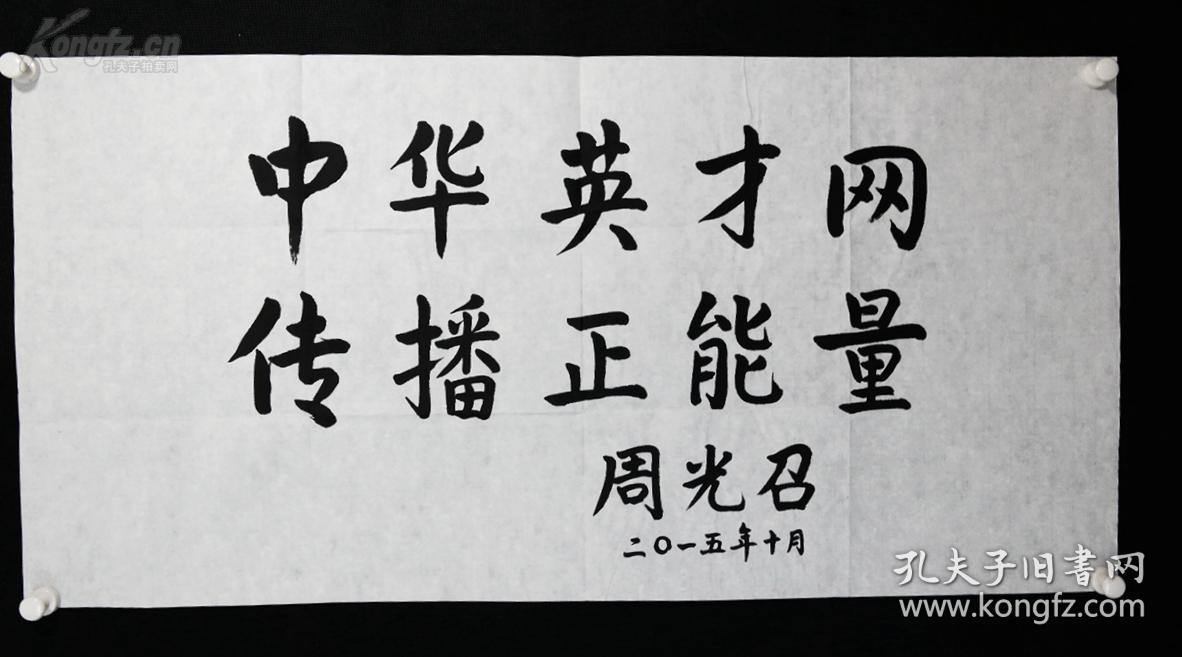 Kongfz.cn
孔夫子拍卖网
中华英才网
传播正能量
周光召
二〇一五年十月
孔夫子旧書网
www.kongfz.com